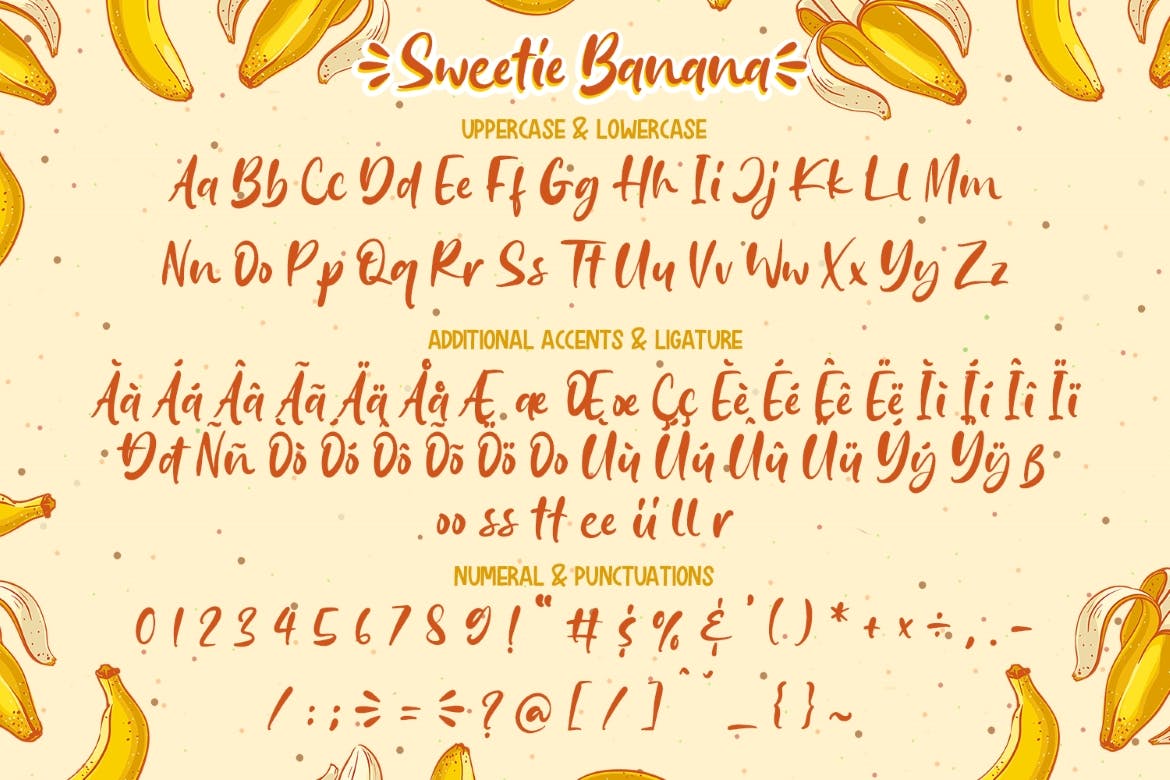 Sweetie Banana
UPPERCASE & LOWERCASE
Aa Bb Cc Dd Ee Ff Gg Hh Ii Jj Kk Ll Mm
Nn Oo Pp Qq Rr Ss Tt Uu Vv Ww Xx Yy Zz
ADDITIONAL ACCENTS & LIGATURE
Àà Áá Ââ Ãã Ää Åå Æ æ Œ œ Çç Èè Éé Êê Ëë Ìì Íí Îî Ïï
Đđ Ññ Òò Óó Ôô Õõ Öö Oo Ùù Úú Ûû Üü Ýý Ÿÿ ß
oo ss tt ee ii ll r
NUMERAL & PUNCTUATIONS
0 1 2 3 4 5 6 7 8 9 ! “ # $ % & ' ( ) * + × ÷ , . –
/ : ; = ? @ [ / ] ^ ˇ _ { } ~